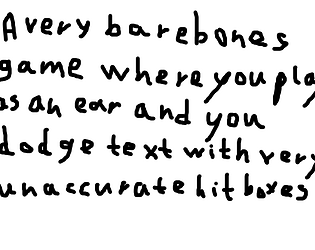 A very barebones
game where you pla
as an ear and you
dodge text with very
unaccurate hitboxes